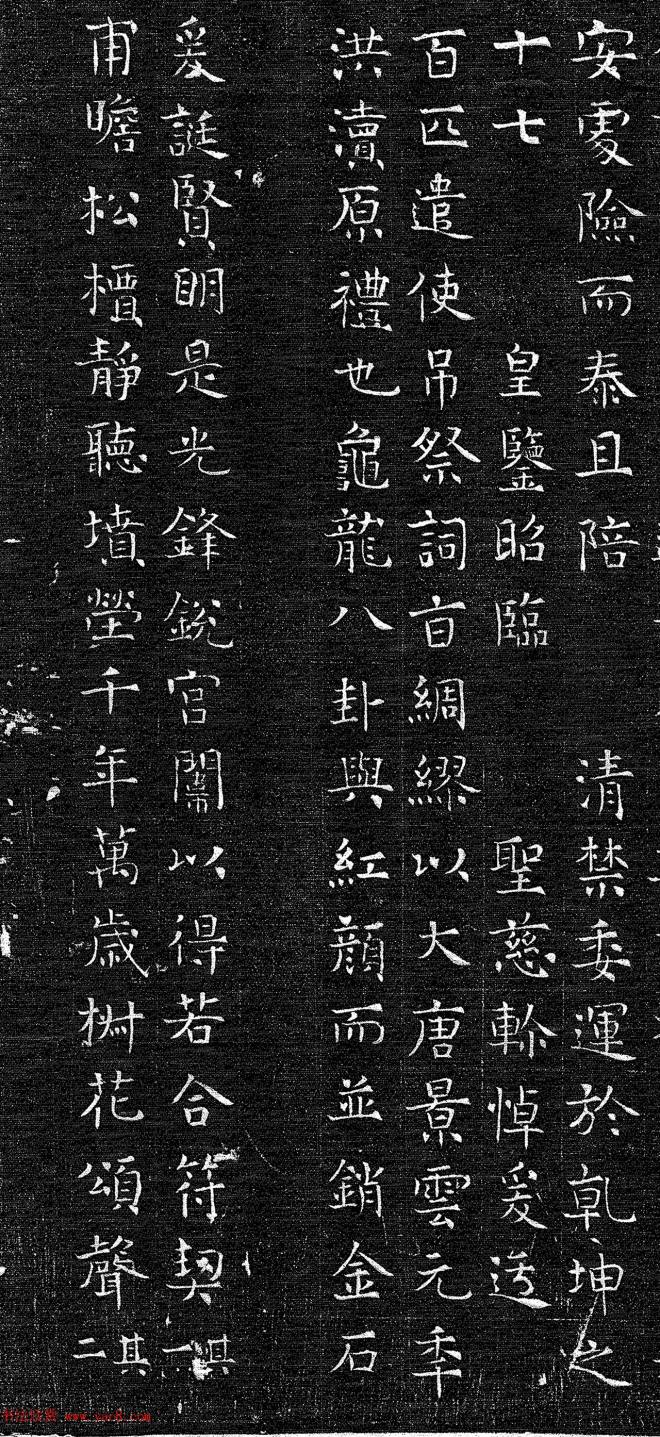 安處險而泰且陪 清禁委運於乹坤之
十七 皇鑒昭臨 聖慈軫悼爰送
百匹遣使吊祭詞旨綢繆以大唐景雲元年
洪瀆原禮也龜龍八卦與紅顔而並銷金石
爰誕賢明是光鋒銳官闈以得若合符契其一
甫瞻松檟靜聽墳塋千年萬歲椒花頌聲其二
www.yac8.com